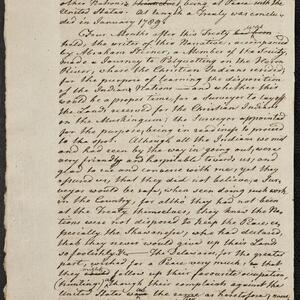 other Nations being at Peace with the
United States. At length a Treaty was conclu-
ded in January 1789.
Four Months after this Treaty had been
held, the writer of this Narrative, accompanied
by Abraham Steiner, a Member of the Society,
made a Journey to Pilgerruh on the Huron
River, where the Christian Indians resided,
for the purpose of learning the disposition
of the Indian Nations — and whether this
would be a proper time, for a Surveyor to lay off
the Lands reserved for the Christian Indians
on the Muskingum; the Surveyor appointed
for the purpose, being in readiness to proceed
to the spot. Although all the Indians we met
and had seen by the way in going out, were
very friendly and hospitable towards us, and
glad to see and converse with me; yet they
assured us, that they did not believe a Sur-
veyor would be safe, when seen doing such work
in the Country, for altho' they had not been
at the Treaty themselves, they knew the Na-
tions were not disposed to keep the Peace, es-
pecially the Shawanese, who had declared,
that they never would give up their Land
so footishly &c. The Delawares, for the greater
part, wished for a Peace, were they
follow up their favourite occupation,
(hunting) tho' complaints against the
United States the same as heretofore;